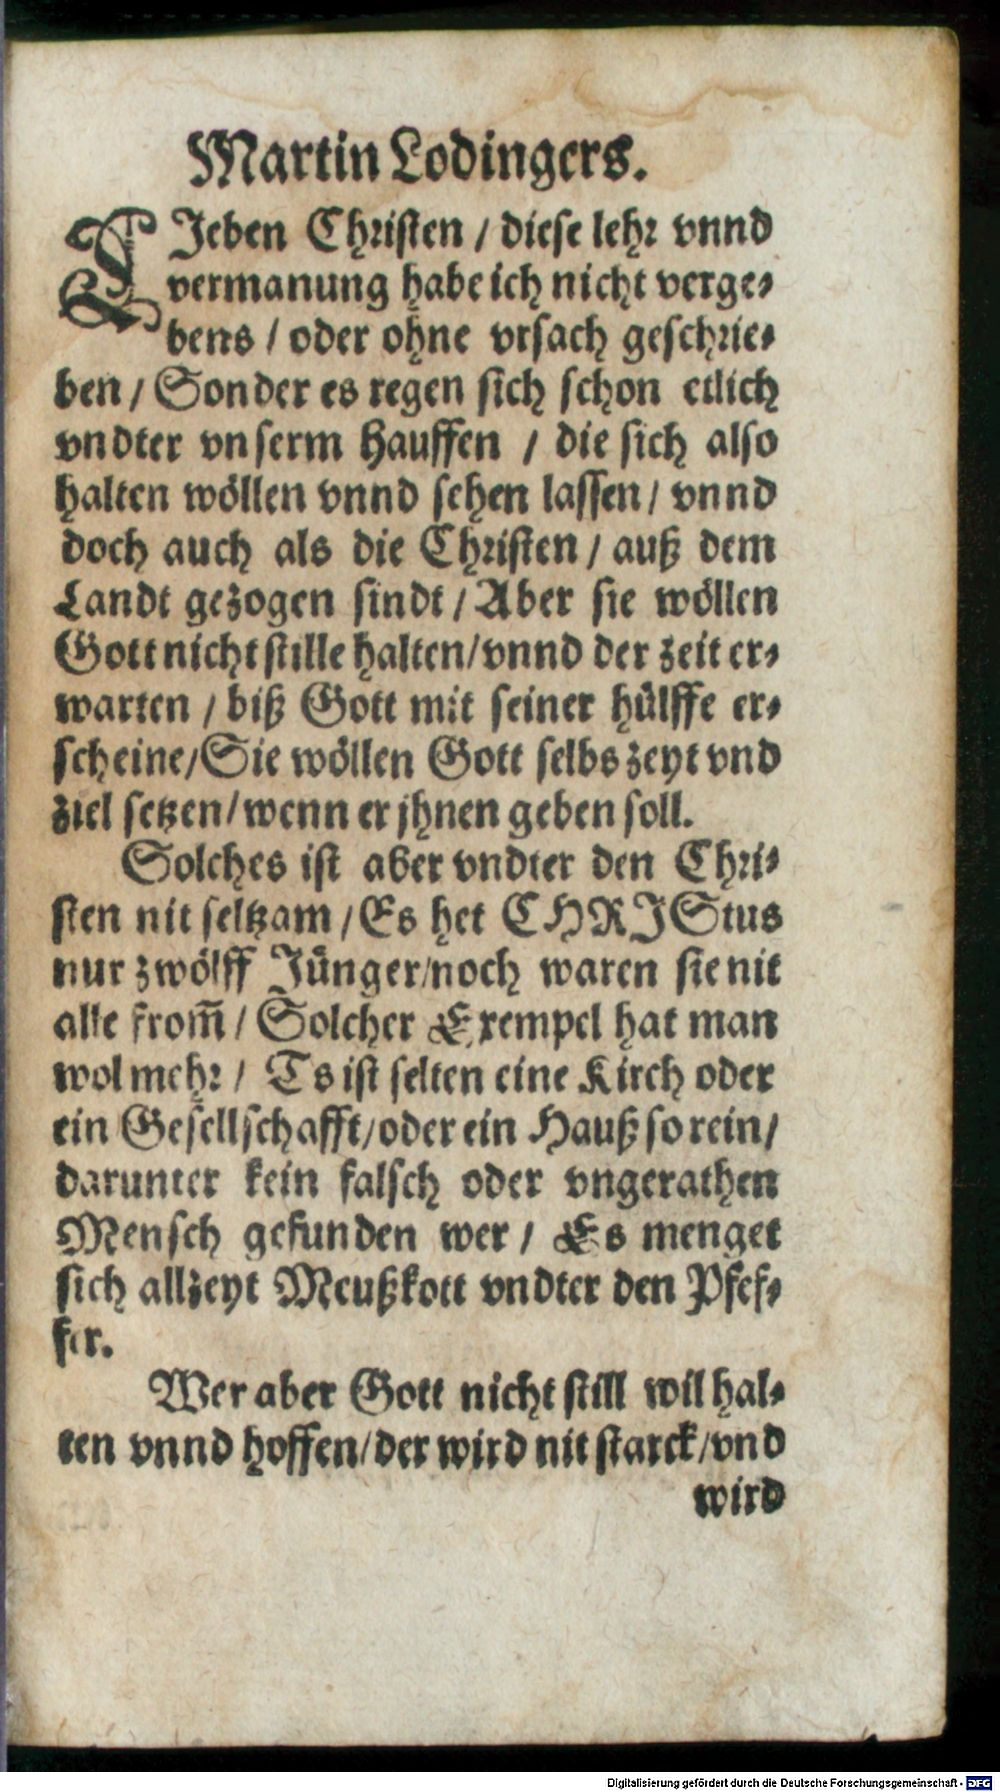 Martin Lodingers.
LJeben Christen / diese lehr vnnd
vermanung habe ich nicht verge-
bens / oder ohne vrsach geschrie-
ben / Sonder es regen sich schon etlich
vndter vnserm Hauffen / die sich also
halten wöllen vnnd sehen lassen / vnnd
doch auch als die Christen / auß dem
Landt gezogen sindt / Aber sie wöllen
Gott nicht stille halten / vnnd der zeit er-
warten / biß Gott mit seiner hülffe er-
scheine / Sie wöllen Gott selbs zeyt vnd
ziel setzen / wenn er jhnen geben soll.
Solches ist aber vndter den Chri-
sten nit seltzam / Es het CHRJStus
nur zwölff Jünger / noch waren sie nit
alle from̄ / Solcher Exempel hat man
wol mehr / Ts ist selten eine Kirch oder
ein Gesellschafft / oder ein Hauß so rein /
darunter kein falsch oder vngerathen
Mensch gefunden wer / Es menget
sich allzeyt Meußkott vndter den Pfef-
fer.
Wer aber Gott nicht still wil hal-
ten vnnd hoffen / der wird nit starck / vnd
wird
Digitalisierung gefördert durch die Deutsche Forschungsgemeinschaft - DFG